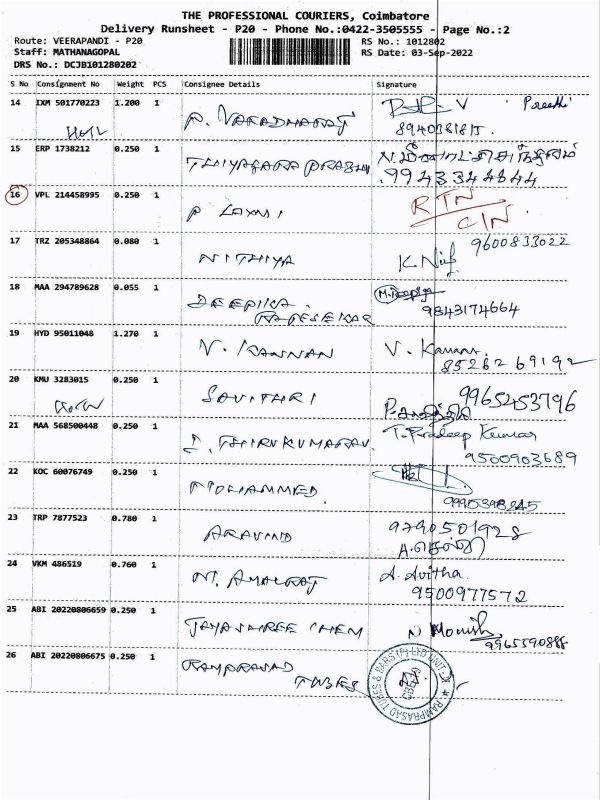 THE PROFESSIONAL COURIERS, Coimbatore
Delivery Runsheet - P20 - Phone No.:0422-3505555 - Page No.:2
Route: VEERAPANDI - P20 RS No.: 1012802
Staff: MATHANAGOPAL RS Date: 03-Sep-2022
DRS No.: DCJB101280202
S No Consignment No Weight PCS Consignee Details Signature
14 IXM 501770223 1.200 1 P. VARADHARAJ V Preethi
15 ERP 1738212 0.250 1 THIYAGARA PRABHU
9943344844
16 VPL 214458995 0.250 1 P LAXMI RTN
CIN
17 TRZ 205348864 0.080 1 NITHIYA 9600833022
18 MAA 294789628 0.055 1 DEEPIKA
RAJESEKAR 9843174664
19 HYD 95011048 1.270 1 V. KANNAN V. Kannan
85262 69192
20 KMU 3283015 0.250 1 SAVITHRI 9965453796
21 MAA 568500448 0.250 1 THIRUKUMARAN T. Pradeep Kumar
9500903689
22 KOC 60076749 0.250 1 MOHAMMED
23 TRP 7877523 0.780 1 ARAVIND 9790501928
24 VKM 486519 0.760 1 N. AMALRAJ A. Avitha
9500977572
25 ABI 20220806659 0.250 1 JAYASHREE CHEM N Monish
9965590888
26 ABI 20220806675 0.250 1 RAMPRASAD
TUBES
RAMPRASAD TUBES & BARS (P) LTD UNIT